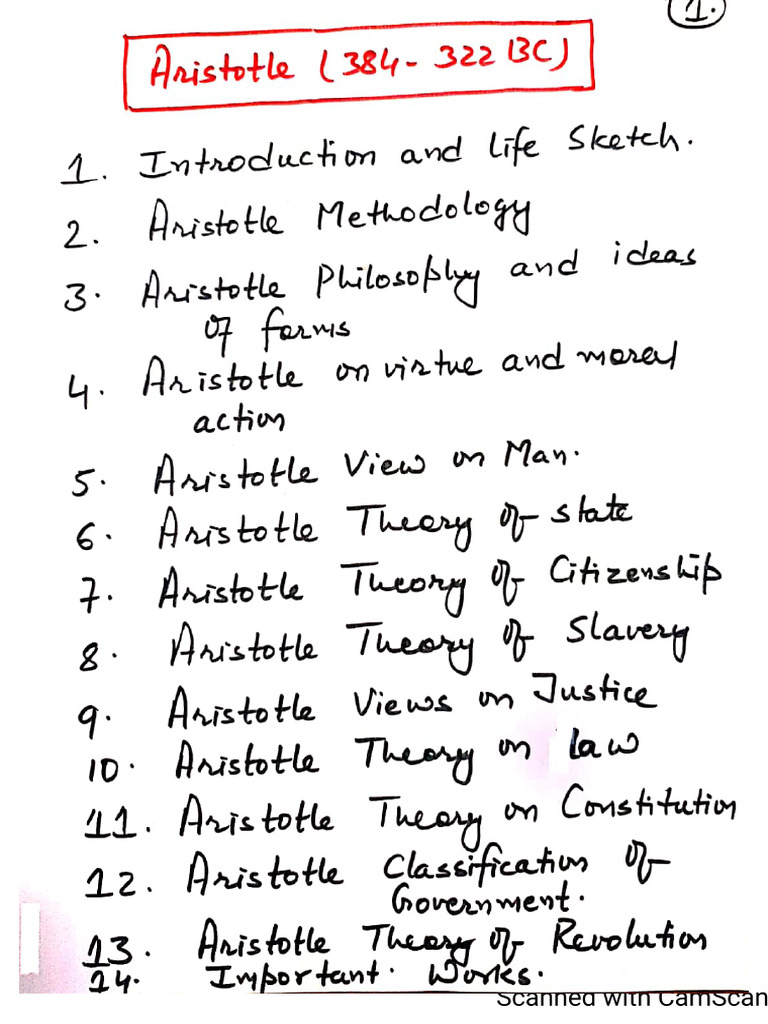 1.
Aristotle (384- 322 BC)
1. Introduction and life Sketch.
2. Aristotle Methodology
3. Aristotle Philosophy and ideas
of forms
4. Aristotle on virtue and moral
action
5. Aristotle View on Man.
6. Aristotle Theory of state
7. Aristotle Theory of Citizenship
8. Aristotle Theory of Slavery
9. Aristotle Views on Justice
10. Aristotle Theory on law
11. Aristotle Theory on Constitution
12. Aristotle Classification of
Government.
13. Aristotle Theory of Revolution
14. Important. Works.
Scanned with CamScan